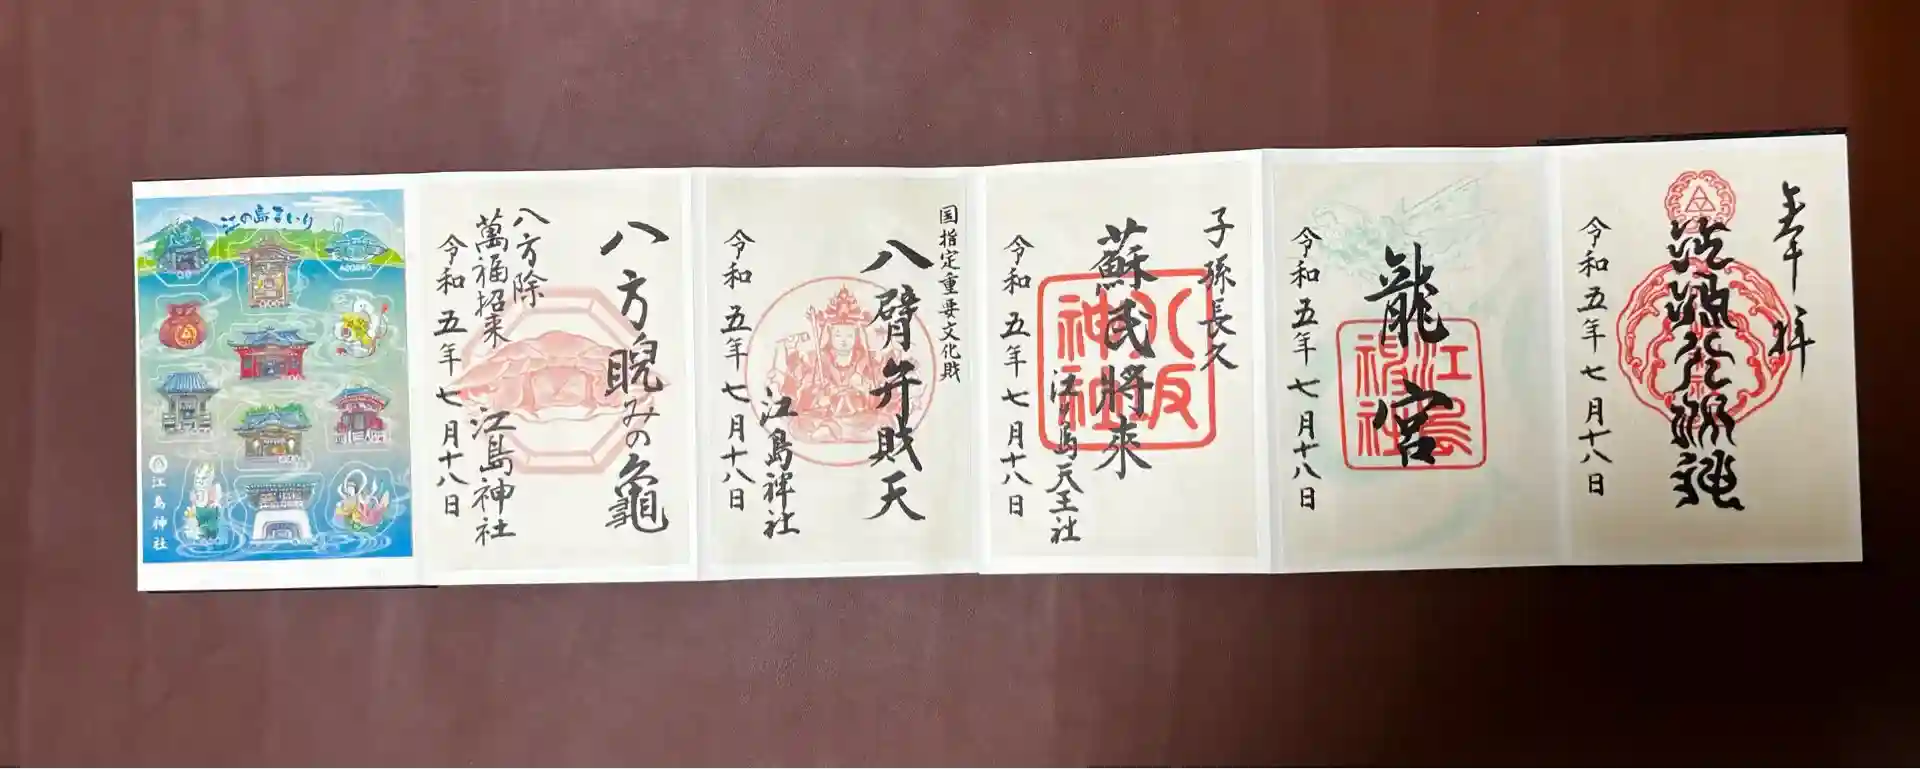 奉拝
令和五年七月十八日
龍宮
江島
神社
令和五年七月十八日
子孫長久
蘇民將来
八坂
神社
江ノ島天王社
令和五年七月十八日
国指定重要文化財
八臂弁財天
江島神社
令和五年七月十八日
八方睨みの龜
八方除
萬福招来
江島神社
令和五年七月十八日
江の島まいり
江島神社